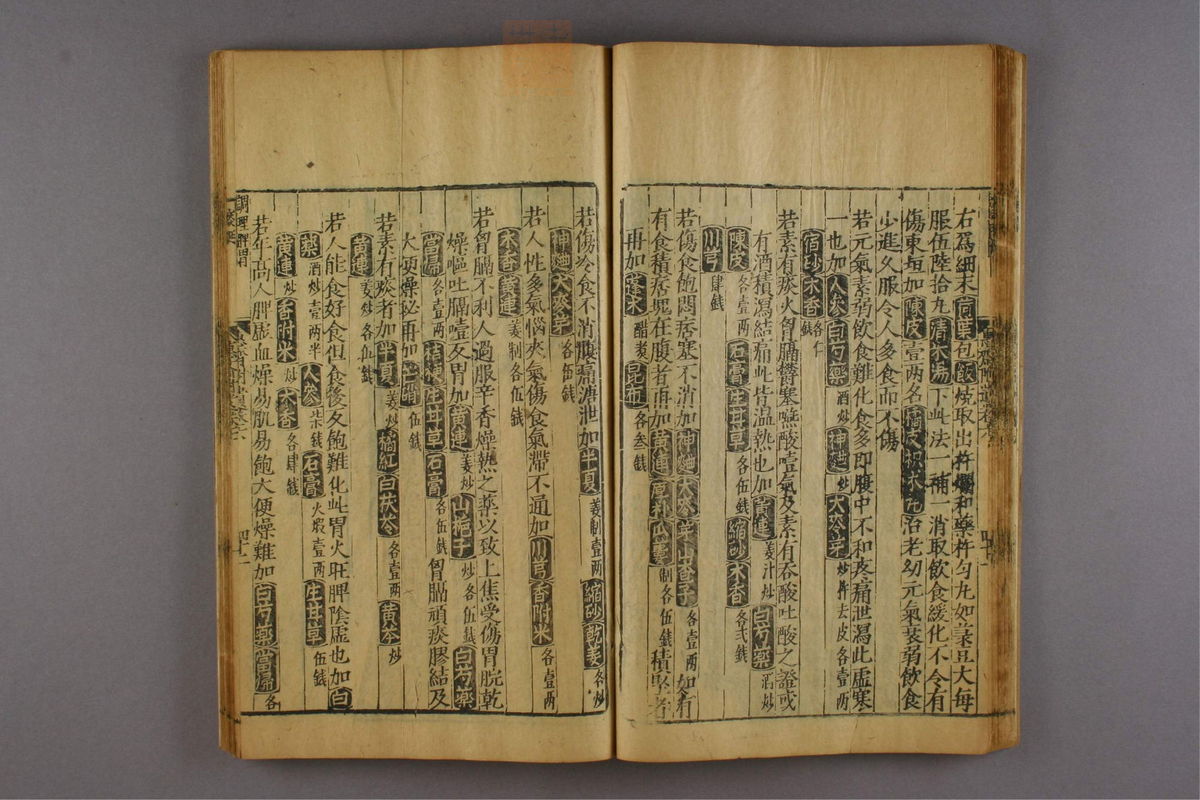 右為細末荷葉包飯燒取出杵爛和藥杵勻丸如菉豆大每
服伍陸拾丸清米湯下此法一補一消取飲食緩化不令有
傷東垣加陳皮壹兩名橘皮枳朮丸治老幼元氣衰弱飲食
少進久服令人多食而不傷
若元氣素弱飲食難化食多即腹中不和疼痛泄瀉此虛寒
一也加人參白芍藥酒炒神麯炒大麥芽炒杵去皮各壹兩
宿砂木香各仁錢
若素有痰火胷膈鬱塞嚥酸噎氣及素有吞酸吐酸之證或
有酒積瀉結痛此皆温熱也加黃連姜汁炒白芍藥酒炒
陳皮各壹兩石膏生甘草各伍錢縮砂木香各弍錢
川芎肆錢
若傷食飽悶痞塞不消加神麯大麥芽山查子各壹兩如有
有食積痞塊在腹者再加黃連厚朴制各伍錢積聚者
再加蓬朮醋煑昆布各叁錢
若傷冷食不消腹痛溏泄加半夏姜制壹兩縮砂乾姜各炒
神麯大麥芽各伍錢
若人性多氣惱夾氣傷食氣滯不通加川芎香附米各壹兩
木香黃連姜制各伍錢
若胷膈不利人過服辛香燥熱之藥以致上焦受傷胃脘乾
燥嘔吐膈噎反胃加黃連姜炒山梔子炒各伍錢白芍藥
當歸各壹兩桔梗生甘草石膏各伍錢胷膈頑痰膠結及
大便燥秘再加芒硝伍錢
若素有痰者加半夏姜炒橘紅白茯苓各壹兩黃芩炒
黃連姜炒各伍錢
若人能食好食但食後反飽難化此胃火旺脾陰虛也加白
藥酒炒壹兩半人參柒錢石膏火煅壹兩生甘草伍錢
黃連炒香附米炒木香各肆錢
若年高人脾虛血燥易肌易飽大便燥難加白芍藥當歸各
調理脾胃
四十二